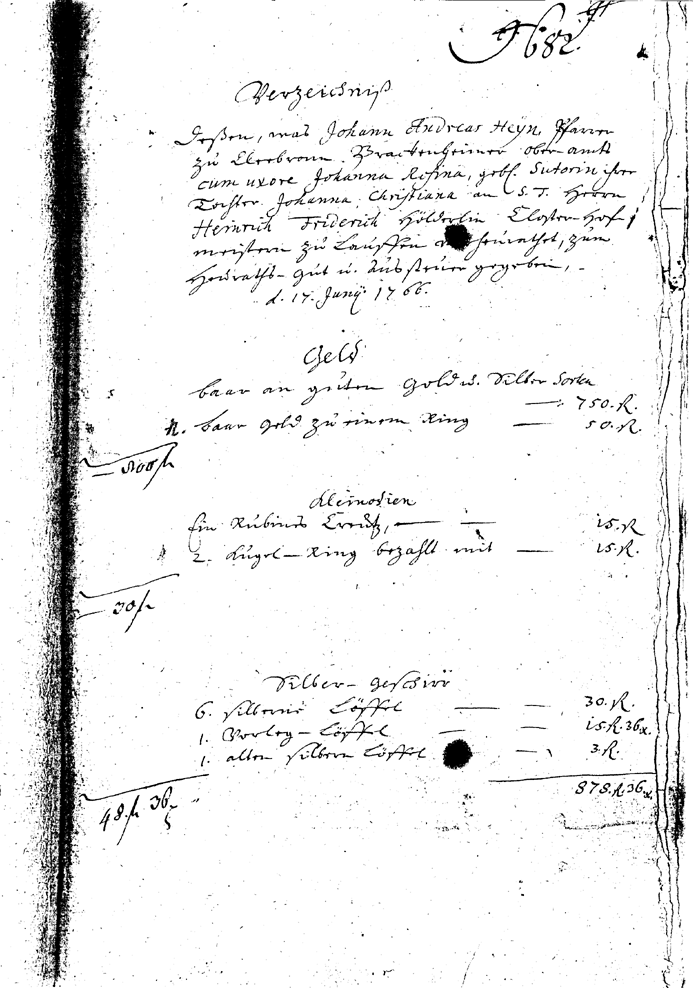 682.
Verzeichniß
Deßen, was Johann Andreas Heyn, Pfarrer
zu Cleebronn Brackenheimer ober-amts
cum uxore Johanna Rosina, gebh. Sutorin ihrer
Tochter Johanna Christiana an S. T. Herrn
Heinrich Friderich Hölderlin Closter-Hof-
meistern zu Lauffen verheurathet, zum
Heuraths-Gut u. Aussteuer gegeben, -
d. 17. Junij 1766.
Geld
baar an guten Gold u. Silber Sorten
— 750. fl.
baar Geld zu einem Ring — 50. fl.
800 fl
Kleinodien
Ein Rubines Creutz, — — 15. fl
2. Kugel-Ring bezahlt mit — 15. fl.
30 fl
Silber-Geschirr
6. silberne Löffel — — 30. fl.
1. Vorleg-Löffel — — 15. fl. 36 x.
1. alten silbern Löffel — 3. fl.
48. fl 36 x
878. fl. 36 x.